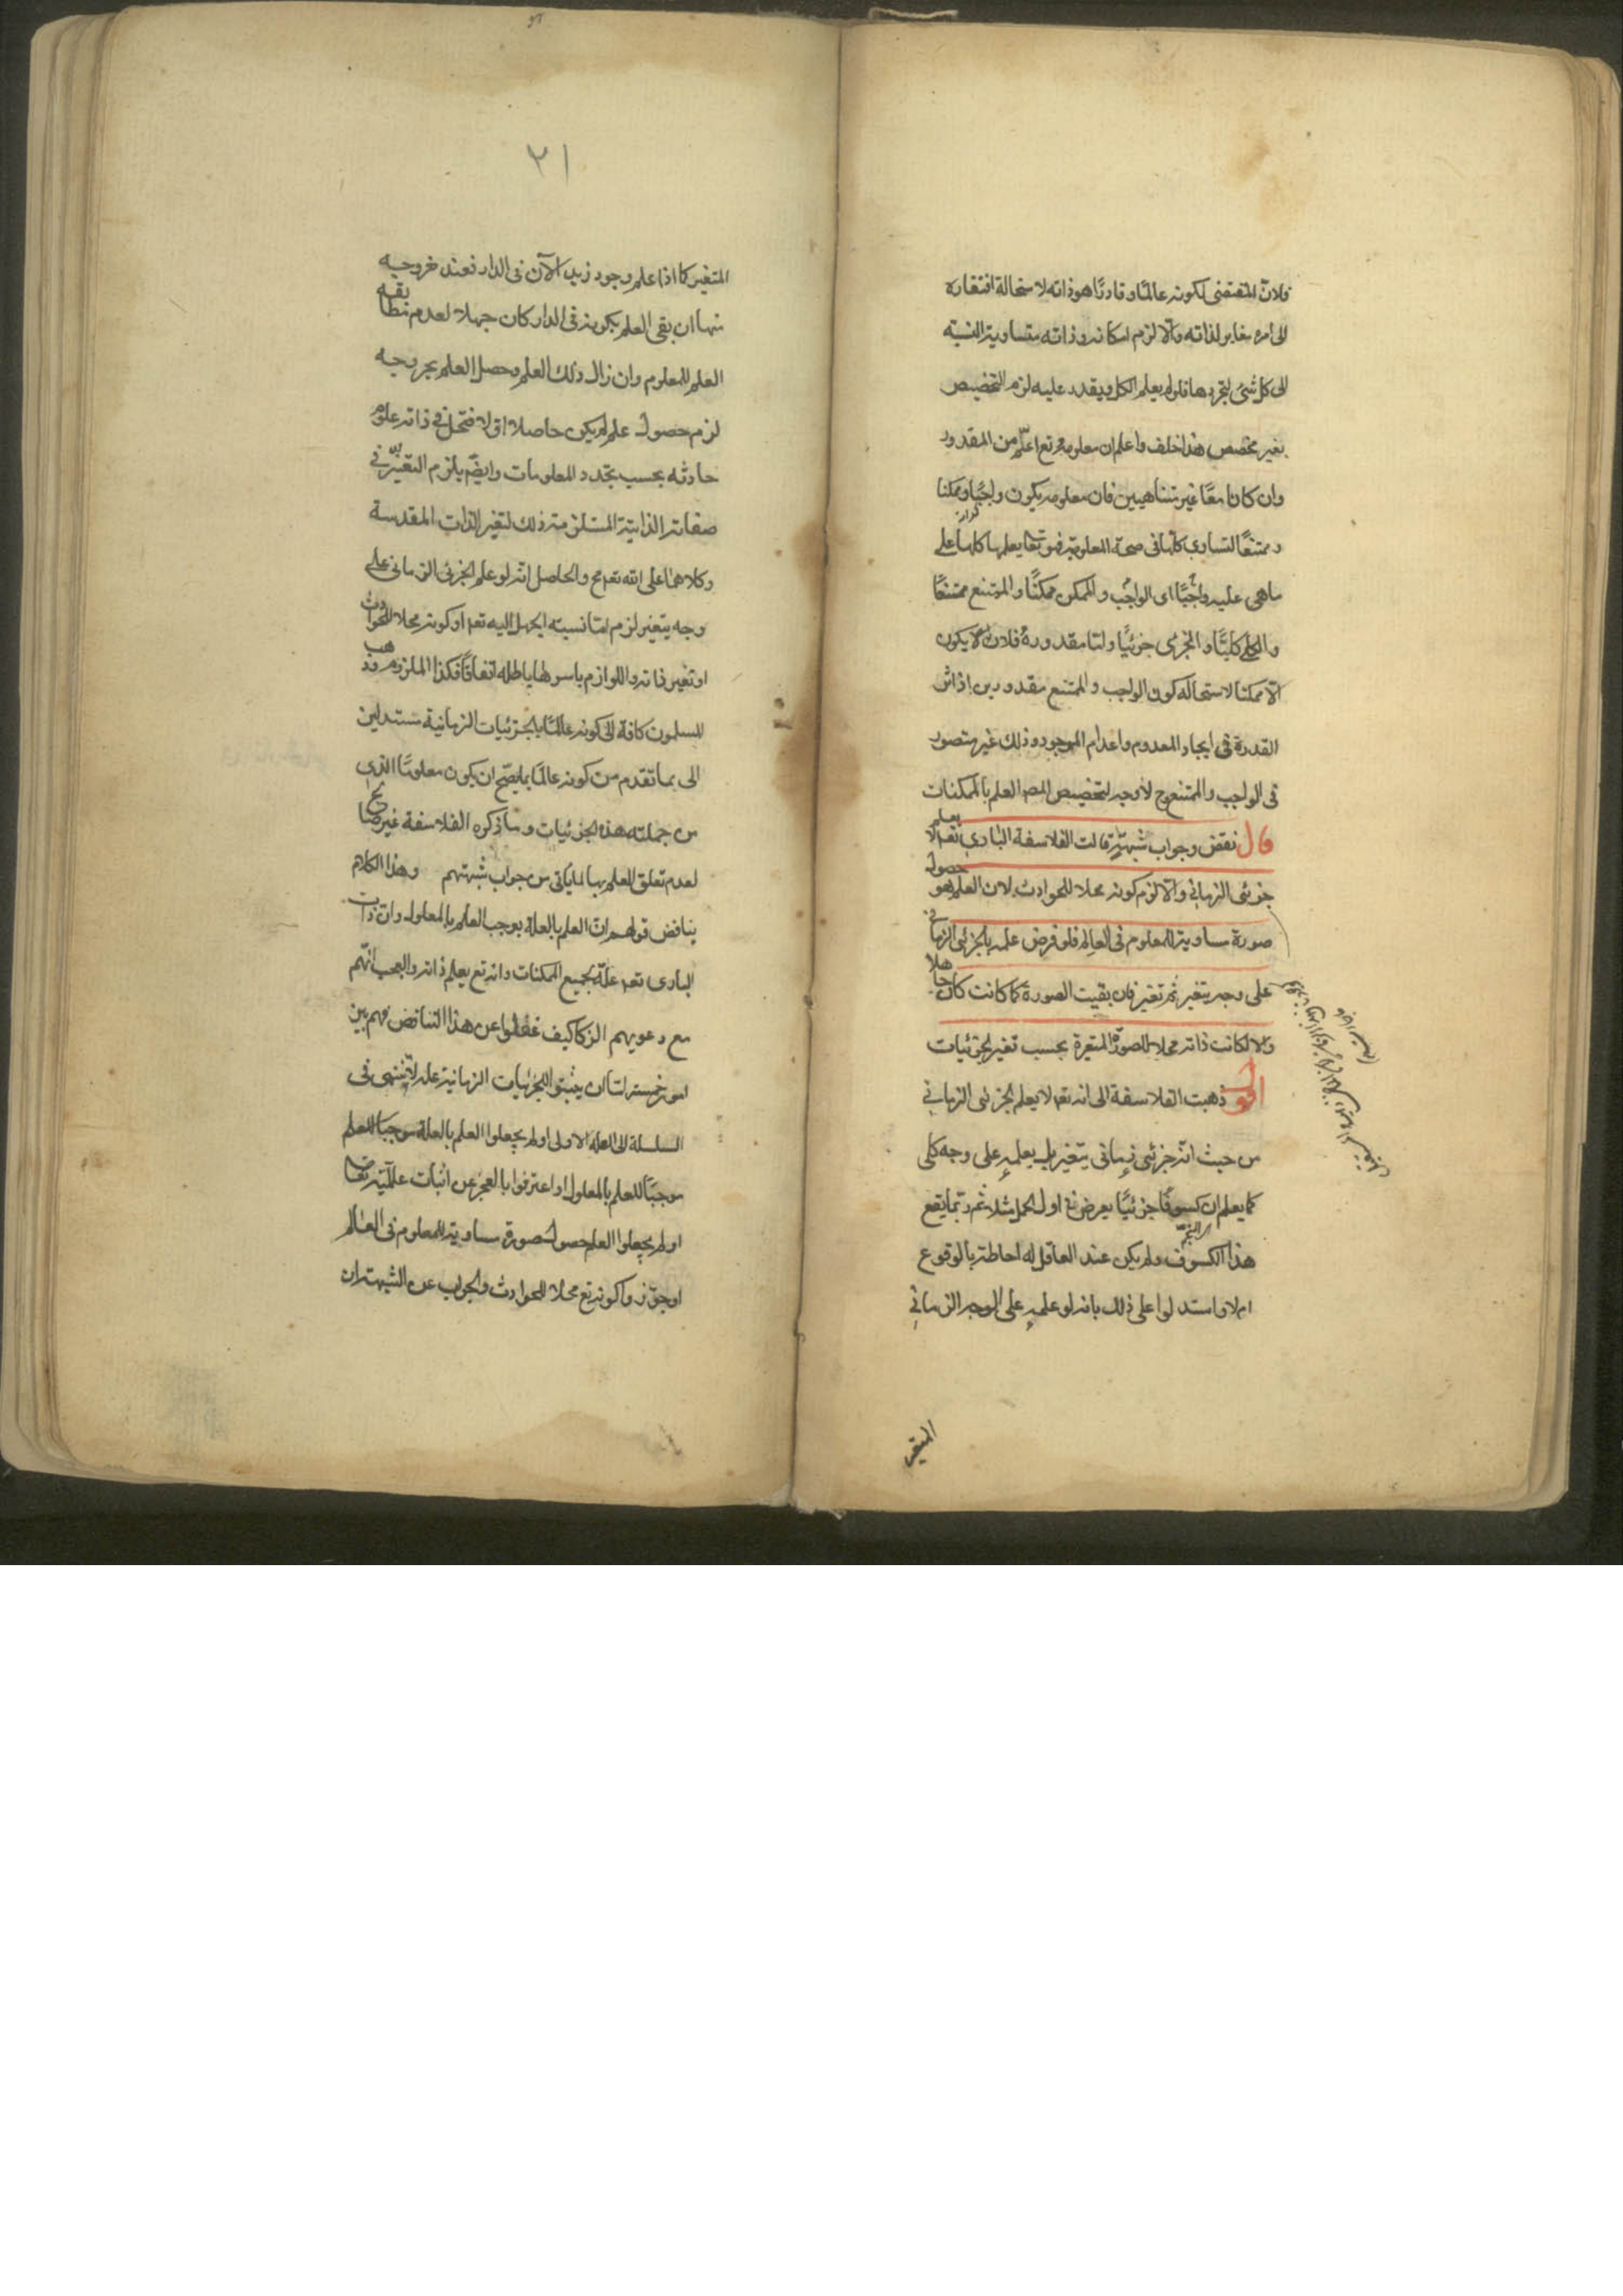 فلانّ المقتضى لكونه عالمًا وقادرًا هو ذاته لاستحالة افتقاره
الى امر مغاير لذاته والّا لزم امكانه وذاته متساوية النسبة
الى كل شئ لتجردها فلو لم يعلم الكل ويقدر عليه لزم التخصيص
بغير مخصص هذا خلف واعلم ان معلومه تع اعمّ من المقدور
وان كانا معًا غير متناهيين فان معلومه يكون واجبًا وممكنا
وممتنعًا لتساوي كلها في صحة المعلومية فهو تعا يعلمها كلها على
ماهى عليه واجبًا اى الواجب والممكن ممكنًا والممتنع ممتنعًا
والكلي كليّا والجزئى جزئيًا واما مقدوره فلانه لا يكون
الّا ممكنا لاستحالة كون الواجب والممتنع مقدورين اذ اثر
القدرة فى ايجاد المعدوم واعدام الموجود وذلك غير متصور
فى الواجب والممتنع وح لا وجه لتخصيص المصر العلم بالممكنات
قال نقض وجواب شبهة قالت الفلاسفة البارى تعه لا يعلم
جزئى الزمانى والّا لزم كونه محلا للحوادث لان العلم هو حصول
صورة مساوية للمعلوم فى العالم فلو فرض علمه بالجزئى الزمانى
على وجه يتغير ثم تغير فان بقيت الصورة كما كانت كان جاهلا
والا لكانت ذاته محلا للصورة المتغيرة بحسب تغير الجزئيات
اقول ذهبت الفلاسفة الى انه تعه لا يعلم الجزئى الزمانى
من حيث انه جزئى زمانى يتغير بل يعلمه على وجه كلى
كما يعلم ان كسوفًا جزئيًا يعرض فى اول الحمل مثلا ثم ربما يقع
هذا الكسوف ولم يكن عند العاقل له احاطة بالوقوع
ام لا واستدلوا على ذلك بانه لو علمه على الوجه الزمانى
المتغير
٢١
المتغير كما اذا علم وجود زيد الآن فى الدار فعند خروجه
منها ان بقى العلم بكونه فى الدار كان جهلا لعدم مطابقة
العلم للمعلوم وان زال ذلك العلم وحصل العلم بخروجه
لزم حصول علم لم يكن حاصلا اولا فتحل فى ذاته علوم
حادثه بحسب تجدد المعلومات وايضّ يلزم التغيّر فى
صفاته الذاتية المستلزمة ذلك لتغير الذات المقدسة
وكلاهما على الله تعه مح والحاصل انّه لو علم الجزئى الزمانى على
وجه يتغير لزم اما نسبة الجهل اليه تعه او كونه محلا للحوادث
او تغير ذاته واللوازم باسرها باطله اتفاقًا فكذا الملزوم وذهب
المسلمون كافة الى كونه عالمًا بالجزئيات الزمانية مستدلين
الى بما تقدم من كونه عالمًا بما يصحّ ان يكون معلومًا الذى
من جملته هذه الجزئيات وما ذكره الفلاسفة غير صالح
لعدم تعلق العلم بها لما يأتى من جواب شبهتهم وهذا الكلام
يناقض قولهم ان العلم بالعلة يوجب العلم بالمعلول وان ذات
البارى تعه علّة لجميع الممكنات وانه تع يعلم ذاته والعجب انّهم
مع دعويهم الزكا كيف غفلوا عن هذا التناقض فهم بين
امور خمسة اما ان يثبتوا للجزئيات الزمانية علة لا تنتهى فى
السلسلة الى العلة الاولى او لم يجعلوا العلم بالعلة موجبًا للعلم
موجبًا للعلم بالمعلول او اعترفوا بالعجز عن اثبات عالمّيته تعا
او لم يجعلوا العلم حصول صورة مساوية للمعلوم فى العالم
او جوّزوا كونه تع محلا للحوادث والجواب عن الشبهة ان